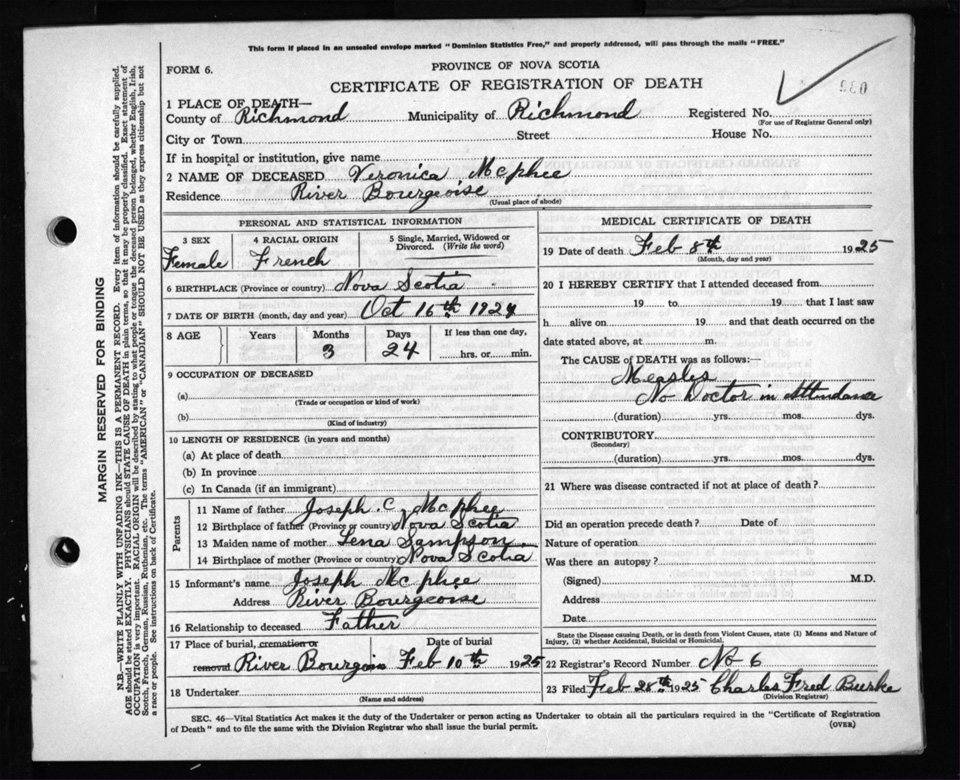 This form if placed in an unsealed envelope marked "Dominion Statistics Free," and properly addressed, will pass through the mails "FREE."
FORM 6.
PROVINCE OF NOVA SCOTIA
CERTIFICATE OF REGISTRATION OF DEATH
1 PLACE OF DEATH—
County of Richmond Municipality of Richmond Registered No.
(For use of Registrar General only)
City or Town Street House No.
If in hospital or institution, give name
2 NAME OF DECEASED Veronica McPhee
Residence River Bourgeoise
(Usual place of abode)
PERSONAL AND STATISTICAL INFORMATION
3 SEX Female
4 RACIAL ORIGIN French
5 Single, Married, Widowed or Divorced. (Write the word)
6 BIRTHPLACE (Province or country) Nova Scotia
7 DATE OF BIRTH (month, day and year) Oct 16th 1924
8 AGE Years Months Days If less than one day,
3 24 hrs. or min.
9 OCCUPATION OF DECEASED
(a)
(Trade or occupation or kind of work)
(b)
(Kind of industry)
10 LENGTH OF RESIDENCE (in years and months)
(a) At place of death
(b) In province
(c) In Canada (if an immigrant)
Parents
11 Name of father Joseph C McPhee
12 Birthplace of father (Province or country) Nova Scotia
13 Maiden name of mother Lena Sampson
14 Birthplace of mother (Province or country) Nova Scotia
15 Informant's name Joseph McPhee
Address River Bourgeoise
16 Relationship to deceased Father
17 Place of burial, cremation or removal Date of burial
River Bourgois Feb 10th 1925
18 Undertaker
(Name and address)
MEDICAL CERTIFICATE OF DEATH
19 Date of death Feb 8th 1925
(Month, day and year)
20 I HEREBY CERTIFY that I attended deceased from
19 to 19 that I last saw
h alive on 19 and that death occurred on the
date stated above, at m.
The CAUSE OF DEATH was as follows:—
Measles
No Doctor in Attendance
(duration) yrs. mos. dys.
CONTRIBUTORY
(Secondary)
(duration) yrs. mos. dys.
21 Where was disease contracted if not at place of death?
Did an operation precede death? Date of
Nature of operation
Was there an autopsy?
(Signed) M.D.
Address
Date
State the Disease causing Death, or in death from Violent Causes, state (1) Means and Nature of
Injury, (2) whether Accidental, Suicidal or Homicidal.
22 Registrar's Record Number No 6
23 Filed Feb 28th 1925 Charles Fred Burke
(Division Registrar)
SEC. 46—Vital Statistics Act makes it the duty of the Undertaker or person acting as Undertaker to obtain all the particulars required in the "Certificate of Registration
of Death" and to file the same with the Division Registrar who shall issue the burial permit.
(OVER)
MARGIN RESERVED FOR BINDING
N.B.—WRITE PLAINLY WITH UNFADING INK—THIS IS A PERMANENT RECORD. Every item of information should be carefully supplied.
AGE should be stated EXACTLY. PHYSICIANS should STATE CAUSE OF DEATH in plain terms, so that it may be properly classified. Exact statement of
OCCUPATION is very important. RACIAL ORIGIN will be described by stating to what people or tongue the deceased person belonged, whether English, Irish,
Scotch, French, German, Russian, Ruthenian, etc. The terms "AMERICAN" or "CANADIAN" SHOULD NOT BE USED as they express citizenship but not
a race or people. See instructions on back of Certificate.